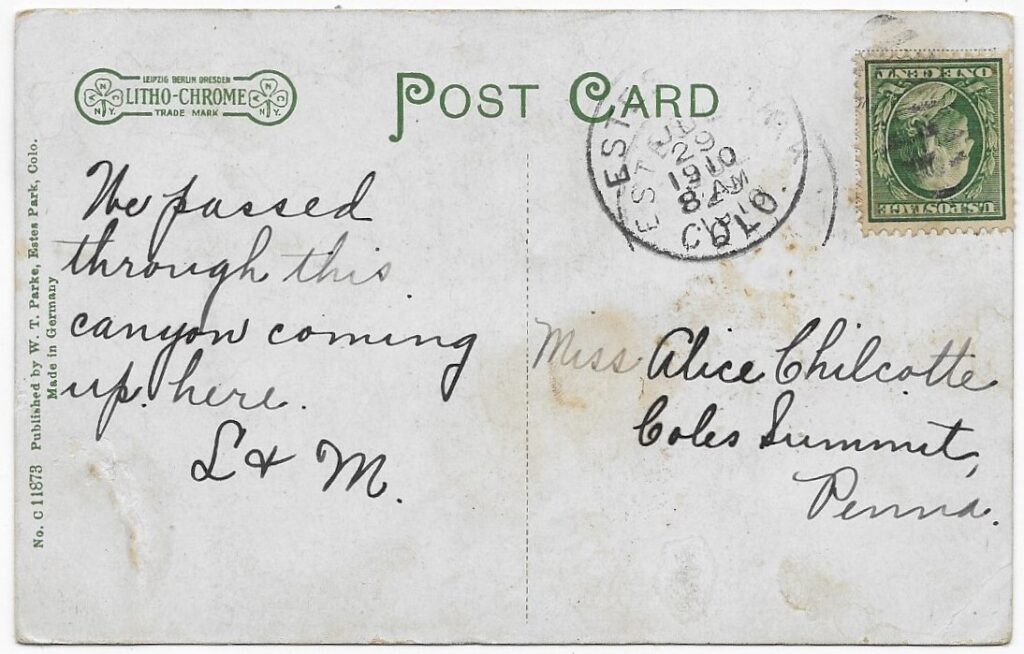 LEIPZIG BERLIN DRESDEN
LITHO-CHROME
TRADE MARK
POST CARD
29
1910
8 AM
COLO.
ONE CENT
U.S. POSTAGE
We passed
through this
canyon coming
up here.
L & M.
Miss Alice Chilcotte
Coles Summit,
Penna.
No. C 11873 Published by W. T. Parke, Estes Park, Colo.
Made in Germany